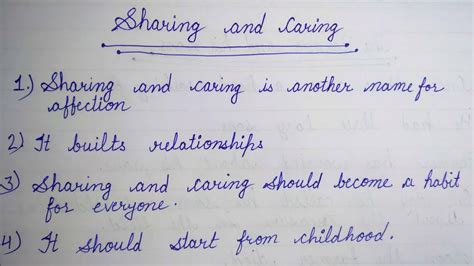 Sharing and Caring
1.) Sharing and caring is another name for
affection
2) It builts relationships
3) Sharing and caring should become a habit
for everyone.
4) It should start from childhood.